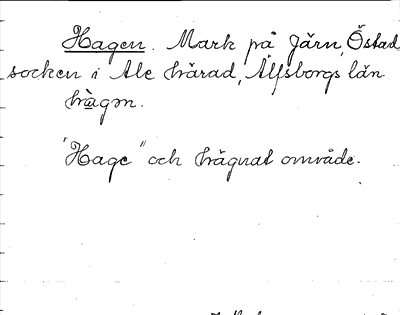 Hagen. Mark på Järn, Östad
socken i Ale härad, Älfsborgs län.
hàgɘn.
"Hage" och hägnat område.